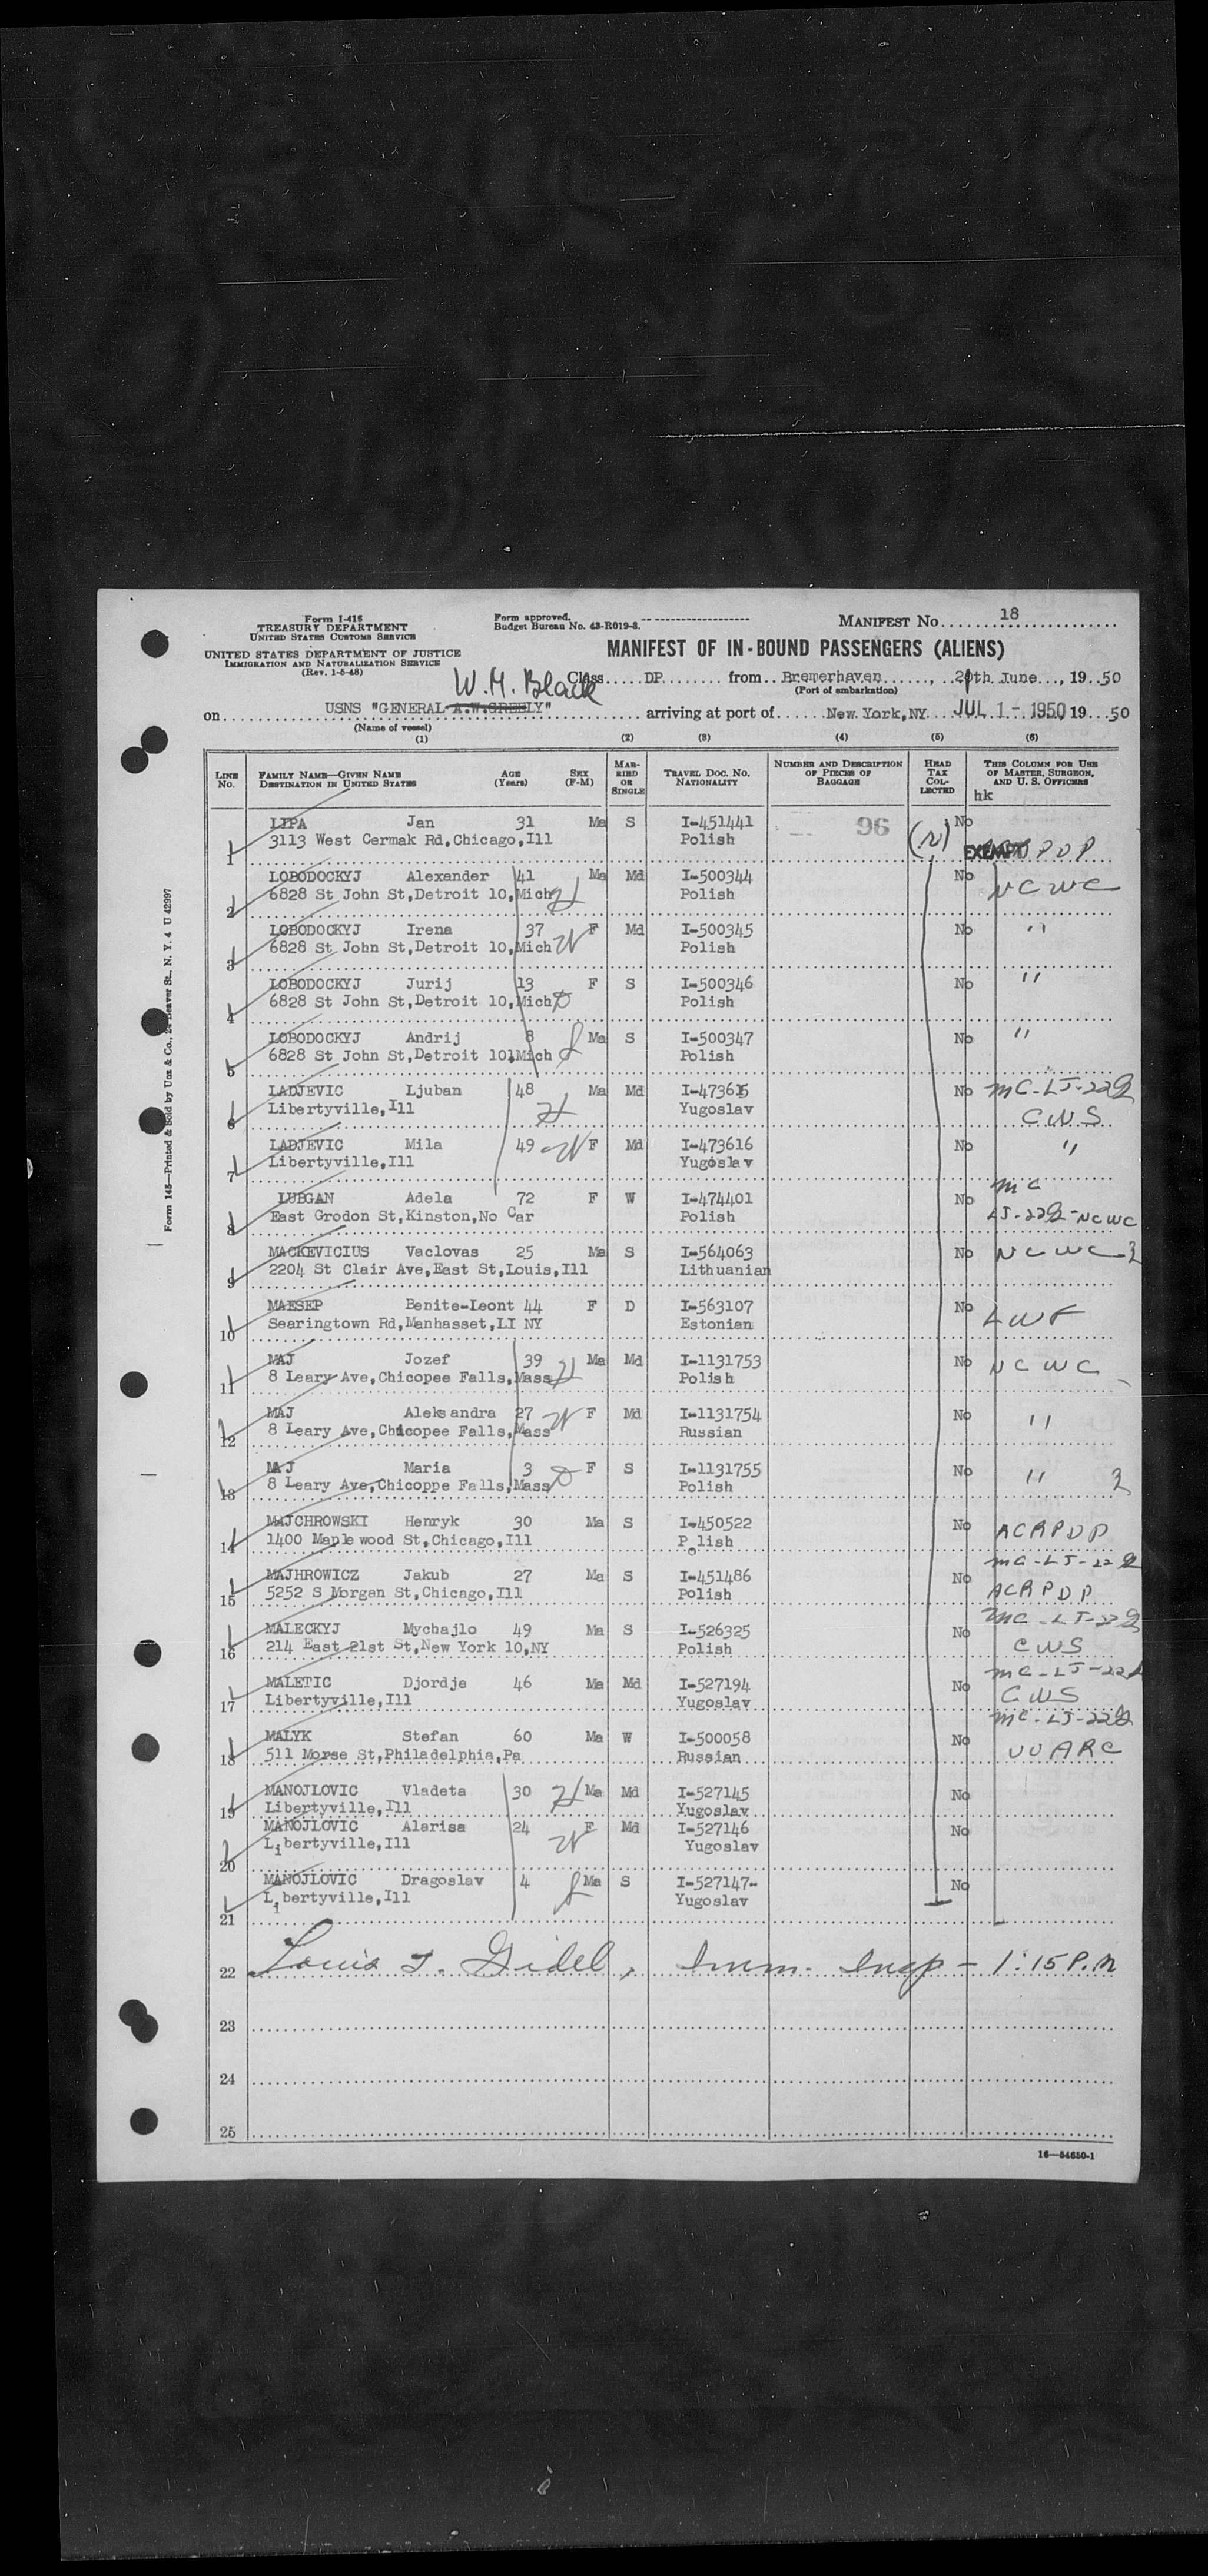 Form I-415
TREASURY DEPARTMENT
UNITED STATES CUSTOMS SERVICE
UNITED STATES DEPARTMENT OF JUSTICE
IMMIGRATION AND NATURALIZATION SERVICE
(Rev. 1-5-48)
Form approved.
Budget Bureau No. 43-R019-3.
MANIFEST No. 18
MANIFEST OF IN-BOUND PASSENGERS (ALIENS)
W. M. Black
Class DP from Bremerhaven, 20th June, 19 50
(Port of embarkation)
on USNS "GENERAL A.W.GREELY" arriving at port of New York, NY JUL 1 - 1950, 19 50
(Name of vessel)
(1) (2) (3) (4) (5) (6)
LINE No. FAMILY NAME—GIVEN NAME DESTINATION IN UNITED STATES AGE (Years) SEX (F-M) MARRIED OR SINGLE TRAVEL DOC. NO. NATIONALITY NUMBER AND DESCRIPTION OF PIECES OF BAGGAGE HEAD TAX COLLECTED THIS COLUMN FOR USE OF MASTER, SURGEON, AND U. S. OFFICERS
hk
1 LIPA Jan 31 Ma S I-451441 96 No
3113 West Cermak Rd,Chicago,Ill Polish EXEMPT PDP
2 LOBODOCKYJ Alexander 41 Ma Md I-500344 No NCWC
6828 St John St,Detroit 10,Mich Polish
3 LOBODOCKYJ Irena 37 F Md I-500345 No "
6828 St John St,Detroit 10,Mich Polish
4 LOBODOCKYJ Jurij 13 F S I-500346 No "
6828 St John St,Detroit 10,Mich Polish
5 LOBODOCKYJ Andrij 8 Ma S I-500347 No "
6828 St John St,Detroit 10,Mich Polish
6 LADJEVIC Ljuban 48 Ma Md I-473615 No MC-LJ-22
Libertyville,Ill Yugoslav CWS
7 LADJEVIC Mila 49 F Md I-473616 No "
Libertyville,Ill Yugoslav
8 LUBGAN Adela 72 F W I-474401 No MC
East Grodon St,Kinston,No Car Polish LJ-22-NCWC
9 MACKEVICIUS Vaclovas 25 Ma S I-564063 No NCWC
2204 St Clair Ave,East St,Louis,Ill Lithuanian
10 MAESEP Benite-Leont 44 F D I-563107 No LWF
Searingtown Rd,Manhasset,LI NY Estonian
11 MAJ Jozef 39 Ma Md I-1131753 No NCWC
8 Leary Ave,Chicopee Falls,Mass Polish
12 MAJ Aleksandra 27 F Md I-1131754 No "
8 Leary Ave,Chicopee Falls,Mass Russian
13 MAJ Maria 3 F S I-1131755 No "
8 Leary Ave,Chicoppe Falls,Mass Polish
14 MAJCHROWSKI Henryk 30 Ma S I-450522 No ACRPDP
1400 Maple wood St,Chicago,Ill Polish
15 MAJHROWICZ Jakub 27 Ma S I-451486 No MC-LJ-22
5252 S Morgan St,Chicago,Ill Polish ACRPDP
16 MALECKYJ Mychajlo 49 Ma S I-526325 No MC-LJ-22
214 East 21st St,New York 10,NY Polish CWS
17 MALETIC Djordje 46 Ma Md I-527194 No MC-LJ-22
Libertyville,Ill Yugoslav CWS
18 MALYK Stefan 60 Ma W I-500058 No MC-LJ-22
511 Morse St,Philadelphia,Pa Russian UUARC
19 MANOJLOVIC Vladeta 30 Ma Md I-527145 No
Libertyville,Ill Yugoslav
20 MANOJLOVIC Alarisa 24 F Md I-527146 No
Libertyville,Ill Yugoslav
21 MANOJLOVIC Dragoslav 4 Ma S I-527147- No
Libertyville,Ill Yugoslav
22 Louis J. Gidel, Imm. Insp - 1:15 P.M
23
24
25
16—54650-1
Form 145—Printed & Sold by Unz & Co., 24 Beaver St., N. Y. 4 U 42997